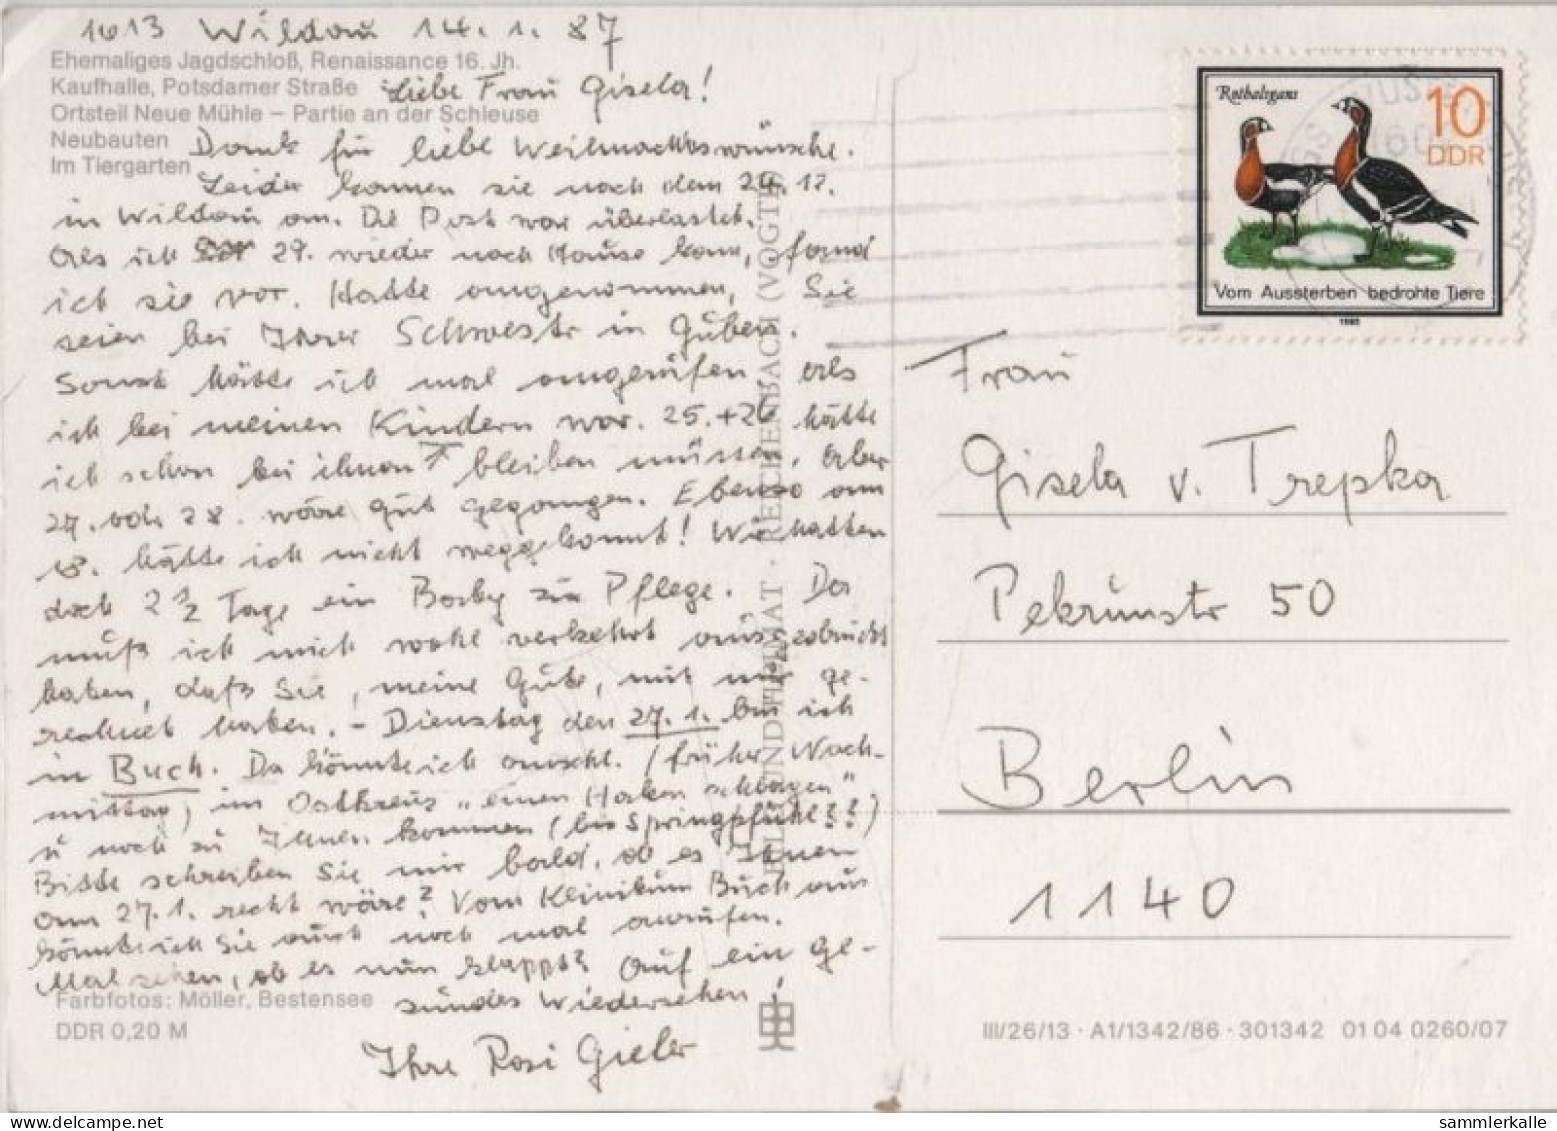 1613 Wildau 14. 1. 87
Ehemaliges Jagdschloß, Renaissance 16. Jh.
Kaufhalle, Potsdamer Straße
Liebe Frau Gisela!
Ortsteil Neue Mühle – Partie an der Schleuse
Neubauten
Im Tiergarten
Dank für liebe Weihnachtswünsche.
Leider kamen sie nach dem 24.12.
in Wildau an. Die Post war überlastet.
Als ich 29. wieder nach Hause kam, fand
ich sie vor. Hatte angenommen, Sie
seien bei Ihrer Schwester in Guben.
Sonst hätte ich mal angerufen, als
ich bei meinen Kindern war. 25.+26. hätte
ich schon bei ihnen bleiben müssen, aber
27. od. 28. wäre gut gegangen. Ebenso am
18. hätte ich nicht weggekonnt! Wir hatten
doch 2 1/2 Tage ein Baby zu Pflege. Da
muß ich mich wohl verkehrt ausgedrückt
haben, daß Sie, meine Gute, mit mir ge-
rechnet haben. – Dienstag den 27.1. bin ich
in Buch. Da könnte ich anschl. (früher Nach-
mittag) im Ostkreuz „einen Haken schlagen"
u noch zu Ihnen kommen (bis Springpfuhl??)
Bitte schreiben Sie mir bald, ob es Ihnen
am 27.1. recht wäre? Vom Klinikum Buch aus
könnte ich Sie auch noch mal anrufen.
Mal sehen, ob es nun klappt? Auf ein ge-
sundes Wiedersehen!
Ihre Rosi Gieler
Farbfotos: Möller, Bestensee
DDR 0,20 M
BILD UND HEIMAT · REICHENBACH (VOGTL)
Rothalsgans
10
DDR
Vom Aussterben bedrohte Tiere
1985
Frau
Gisela v. Trepka
Pekrunstr 50
Berlin
1140
III/26/13 · A1/1342/86 · 301342 01 04 0260/07
sammlerkalle